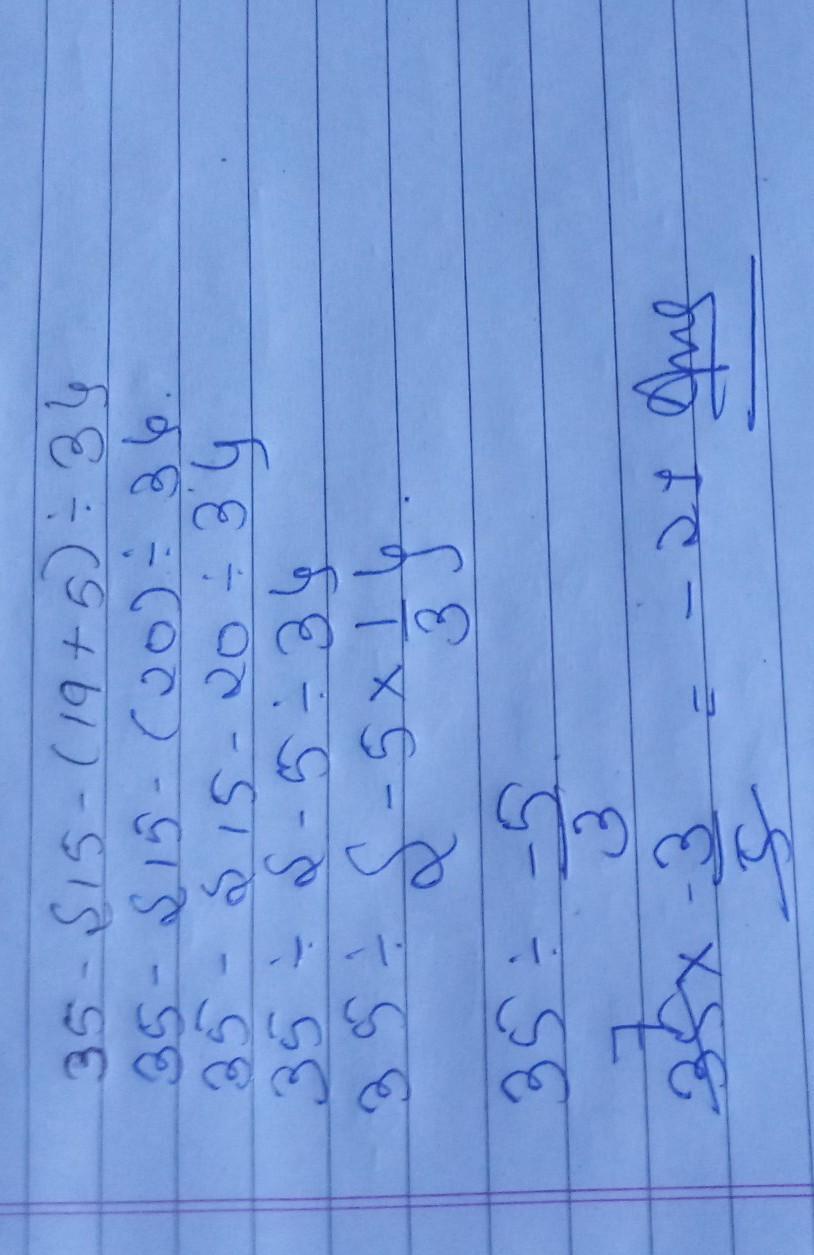 35 - {15 - (19+5) ÷ 3}
35 - {15 - (20) ÷ 3}.
35 - {15 - 20 ÷ 3}
35 ÷ {-5 ÷ 3}
35 ÷ {-5 × 1/3}.
35 ÷ -5/3
7
35 × -3/5 = -21 Ans